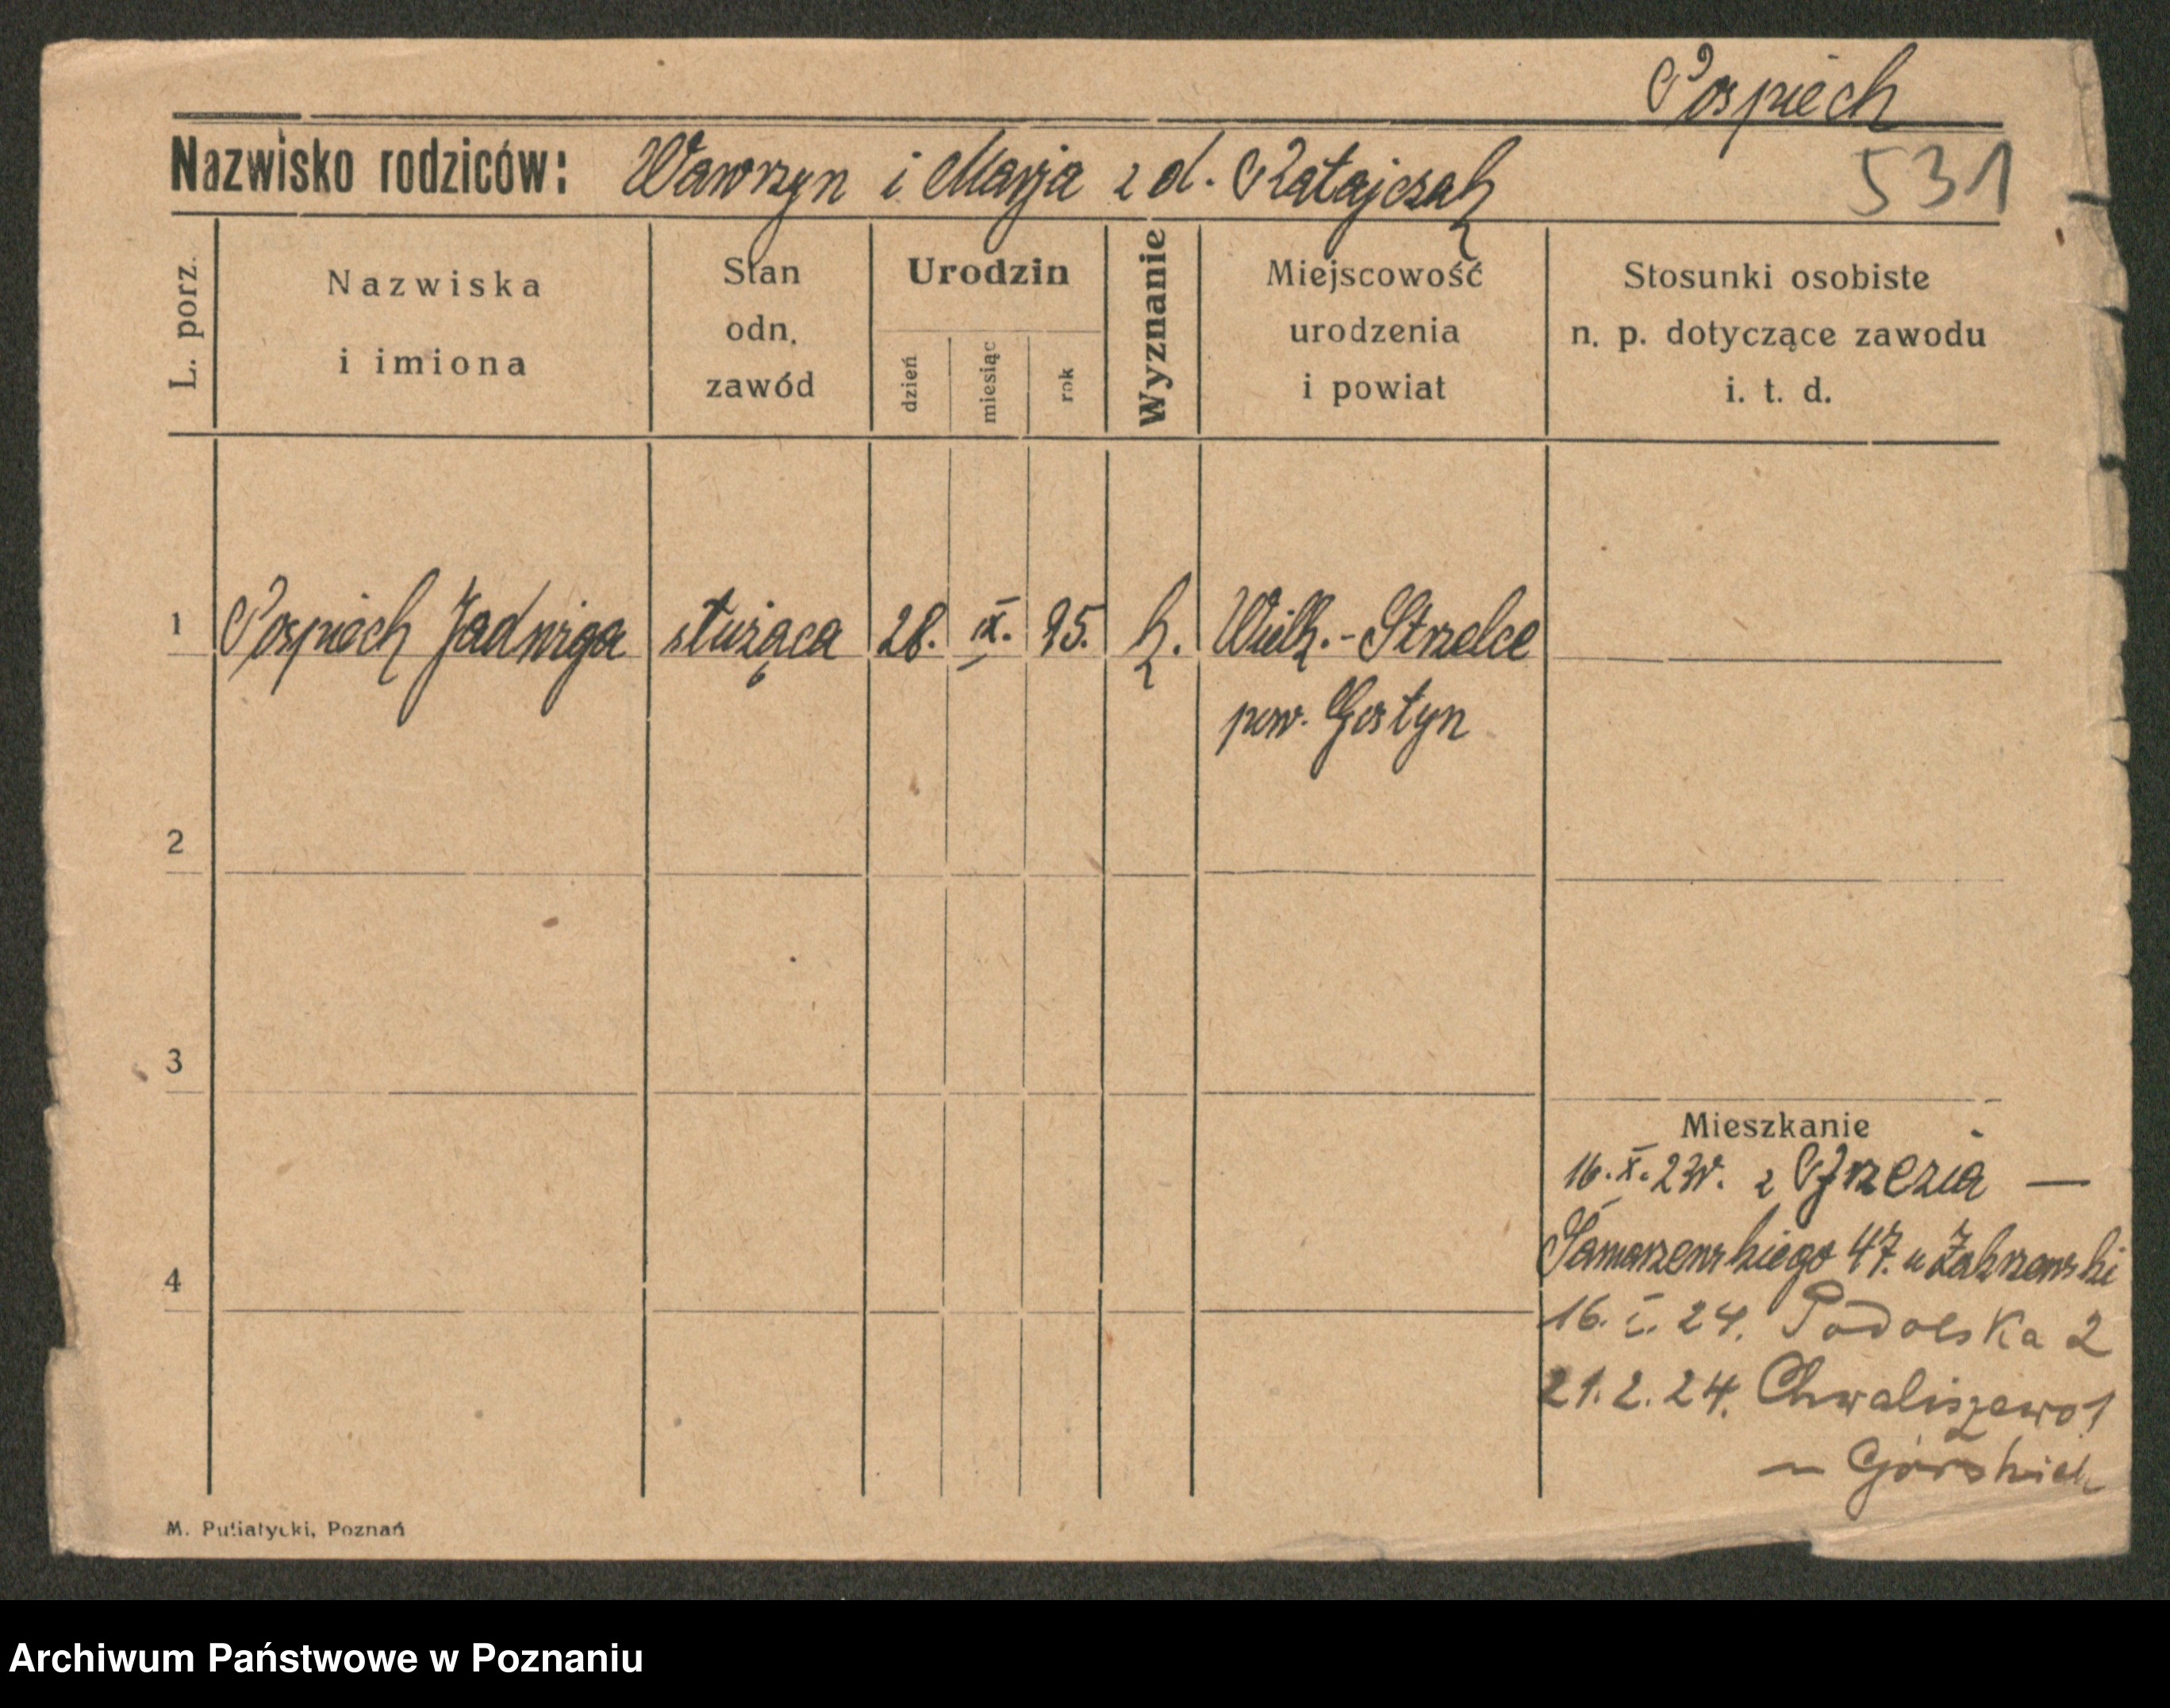 Pospiech
531
Nazwisko rodziców: Wawrzyn i Marja z d. Ratajczak
L. porz.
Nazwiska
i imiona
Stan
odn.
zawód
Urodzin
dzień
miesiąc
rok
Wyznanie
Miejscowość
urodzenia
i powiat
Stosunki osobiste
n. p. dotyczące zawodu
i. t. d.
1 Pospiech Jadwiga służąca 28. IX. 95. k. Wielk.-Strzelce
pow. Gostyn
2
3
Mieszkanie
16. X. 23r. z
47. u Zakrzewski
4
16. I. 24. Podolska 2
21. 2. 24. Chwaliszewo 1
Górskich
M. Putiatycki, Poznań
Archiwum Państwowe w Poznaniu